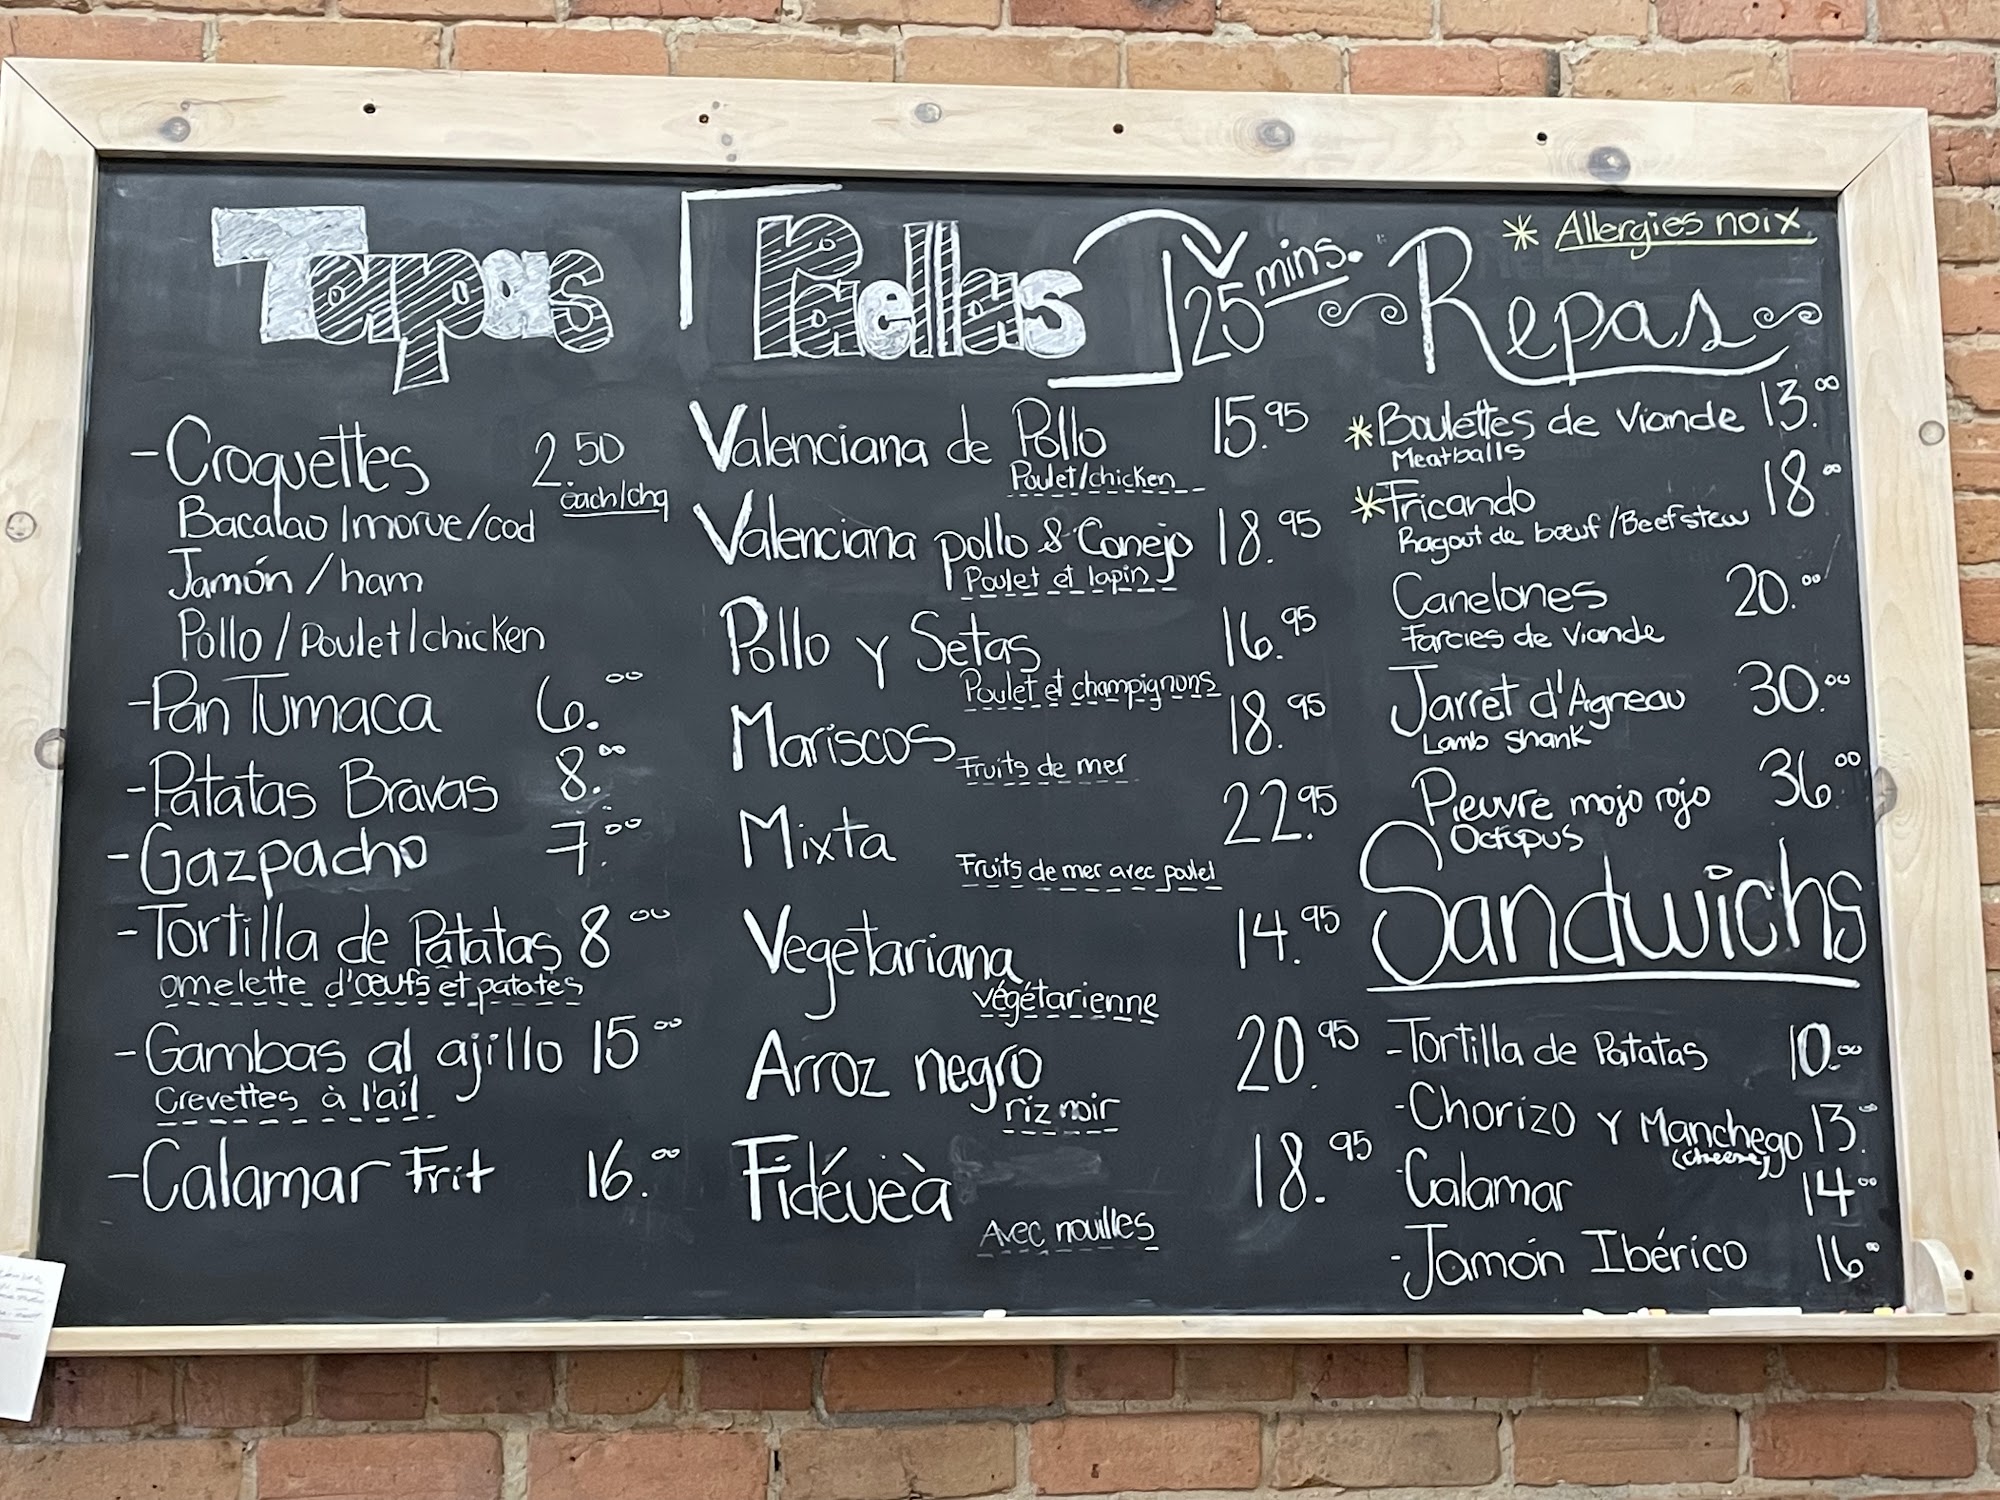 Tapas
- Croquettes 2.50
each/chq
Bacalao/morue/cod
Jamón/ham
Pollo/Poulet/chicken
- Pan Tumaca 6.00
- Patatas Bravas 8.00
- Gazpacho 7.00
- Tortilla de Patatas 8 00
omelette d'œufs et patates
- Gambas al ajillo 15 00
Crevettes à l'ail
- Calamar Frit 16.00
Paellas
25 mins.
Valenciana de Pollo 15.95
Poulet/chicken
Valenciana pollo & Conejo 18.95
Poulet et lapin
Pollo y Setas 16.95
Poulet et champignons
Mariscos 18.95
Fruits de mer
Mixta 22.95
Fruits de mer avec poulet
Vegetariana 14.95
végétarienne
Arroz negro 20.95
riz noir
Fidéueà 18.95
Avec nouilles
* Allergies noix
Repas
* Boulettes de viande 13.00
Meatballs
* Fricando 18.00
Ragout de bœuf/Beef stew
Canelones 20.00
Farcies de viande
Jarret d'Agneau 30.00
Lamb shank
Pieuvre mojo rojo 36.00
Octopus
Sandwichs
- Tortilla de Patatas 10.00
- Chorizo y Manchego 13.00
(cheese)
- Calamar 14.00
- Jamón Ibérico 16.00